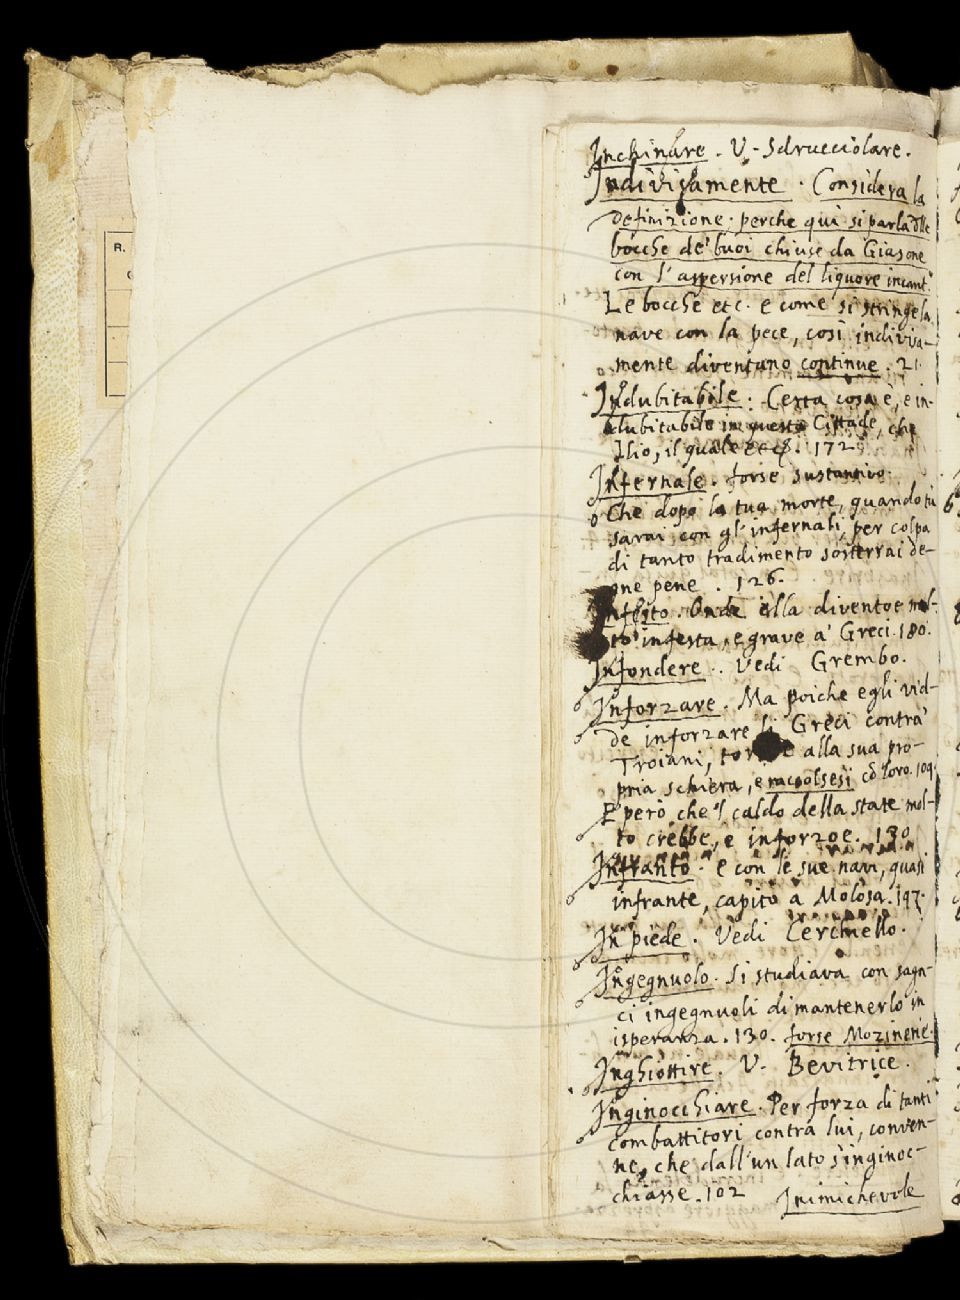 R.
Inchinare. V. Sdrucciolare.
Indivisamente. Considera la
definizione; perche qui si parla dlle
bocche de' buoi chiuse da Giasone
con l'aspersione del liquore incant.
Le bocche etc. e come si stringe la
nave con la pece, così indivisa-
mente diventano continue. 21.
Indubitabile. Certa cosa è, e in-
dubitabile in questa Cittade, che
Ilio, il quale etc. 172
Infernale. forse sustantivo.
Che dopo la tua morte, quando tu
sarai con gl'infernali, per colpa
di tanto tradimento sosterrai de-
gne pene. 126.
Infesto. Onde ella diventoe mol-
to infesta, e grave a' Greci. 180.
Infondere. Vedi Grembo.
Inforzare. Ma poiche egli vid-
de inforzare li Greci contra'
Troiani, alla sua pro-
pria schiera, e raccolsesi cō loro. 109.
E però che'l caldo della state mol-
to crebbe, e inforzoe. 130
Infranto. e con le sue navi, quasi
infrante, capitò a Molosa. 197.
In piede. Vedi Cerchiello.
Ingegnuolo. Si studiava con sagn-
ci ingegnuoli di mantenerlo in
isperanza. 130. forse Mozinerie.
Inghiottire. V. Bevitrice.
Inginocchiare. Per forza di tanti
combattitori contra lui, conven-
ne, che dall'un lato s'inginoc-
chiasse. 102 Inimichevole